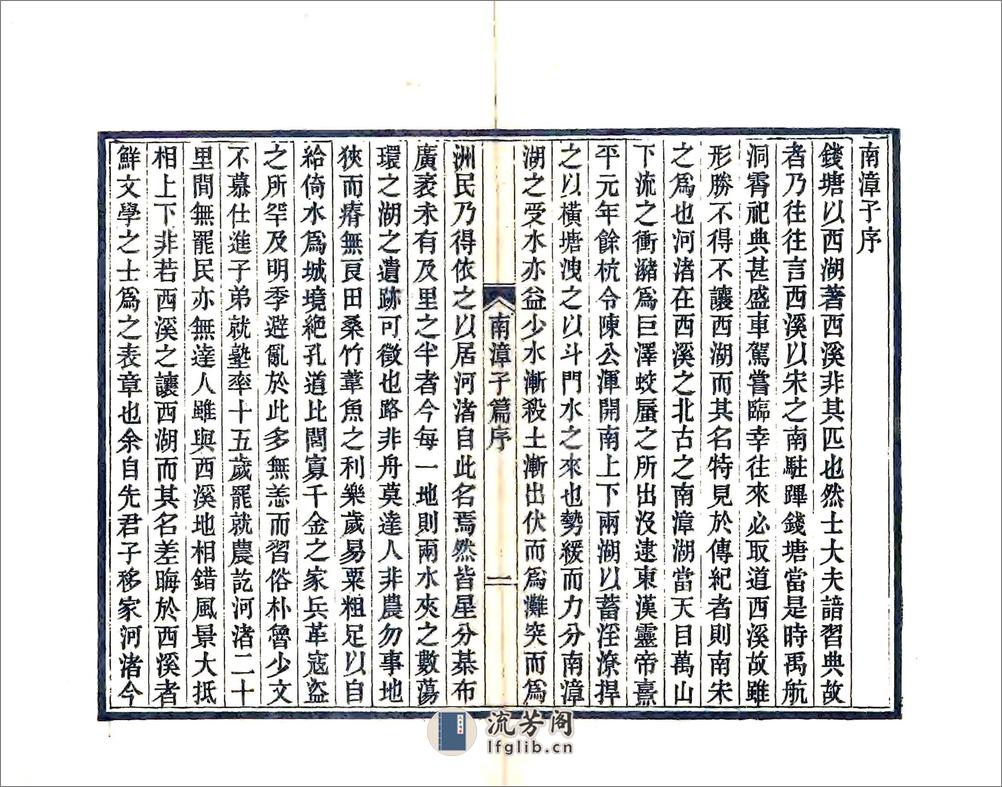 南漳子序
錢塘以西湖著西溪非其匹也然士大夫諳習典故
者乃往往言西溪以宋之南駐蹕錢塘當是時禹航
洞霄祀典甚盛車駕嘗臨幸往來必取道西溪故雖
形勝不得不讓西湖而其名特見於傳紀者則南宋
之爲也河渚在西溪之北古之南漳湖當天目萬山
下流之衝瀦爲巨澤蛟蜃之所出沒逮東漢靈帝熹
平元年餘杭令陳公渾開南上下兩湖以蓄淫潦捍
之以橫塘洩之以斗門水之來也勢緩而力分南漳
湖之受水亦益少水漸殺土漸出伏而爲灘突而爲
南漳子篇序
一
洲民乃得依之以居河渚自此名焉然皆星分棊布
廣袤未有及里之半者今每一地則兩水夾之數蕩
環之湖之遺跡可徵也路非舟莫達人非農勿事地
狹而瘠無良田桑竹葦魚之利樂歲易粟粗足以自
給倚水爲城境絶孔道比閭寡千金之家兵革寇盜
之所罕及明季避亂於此多無恙而習俗朴魯少文
不慕仕進子弟就塾率十五歲罷就農訖河渚二十
里間無罷民亦無達人雖與西溪地相錯風景大抵
相上下非若西溪之讓西湖而其名差晦於西溪者
鮮文學之士爲之表章也余自先君子移家河渚今
流芳阁
lfglib.cn